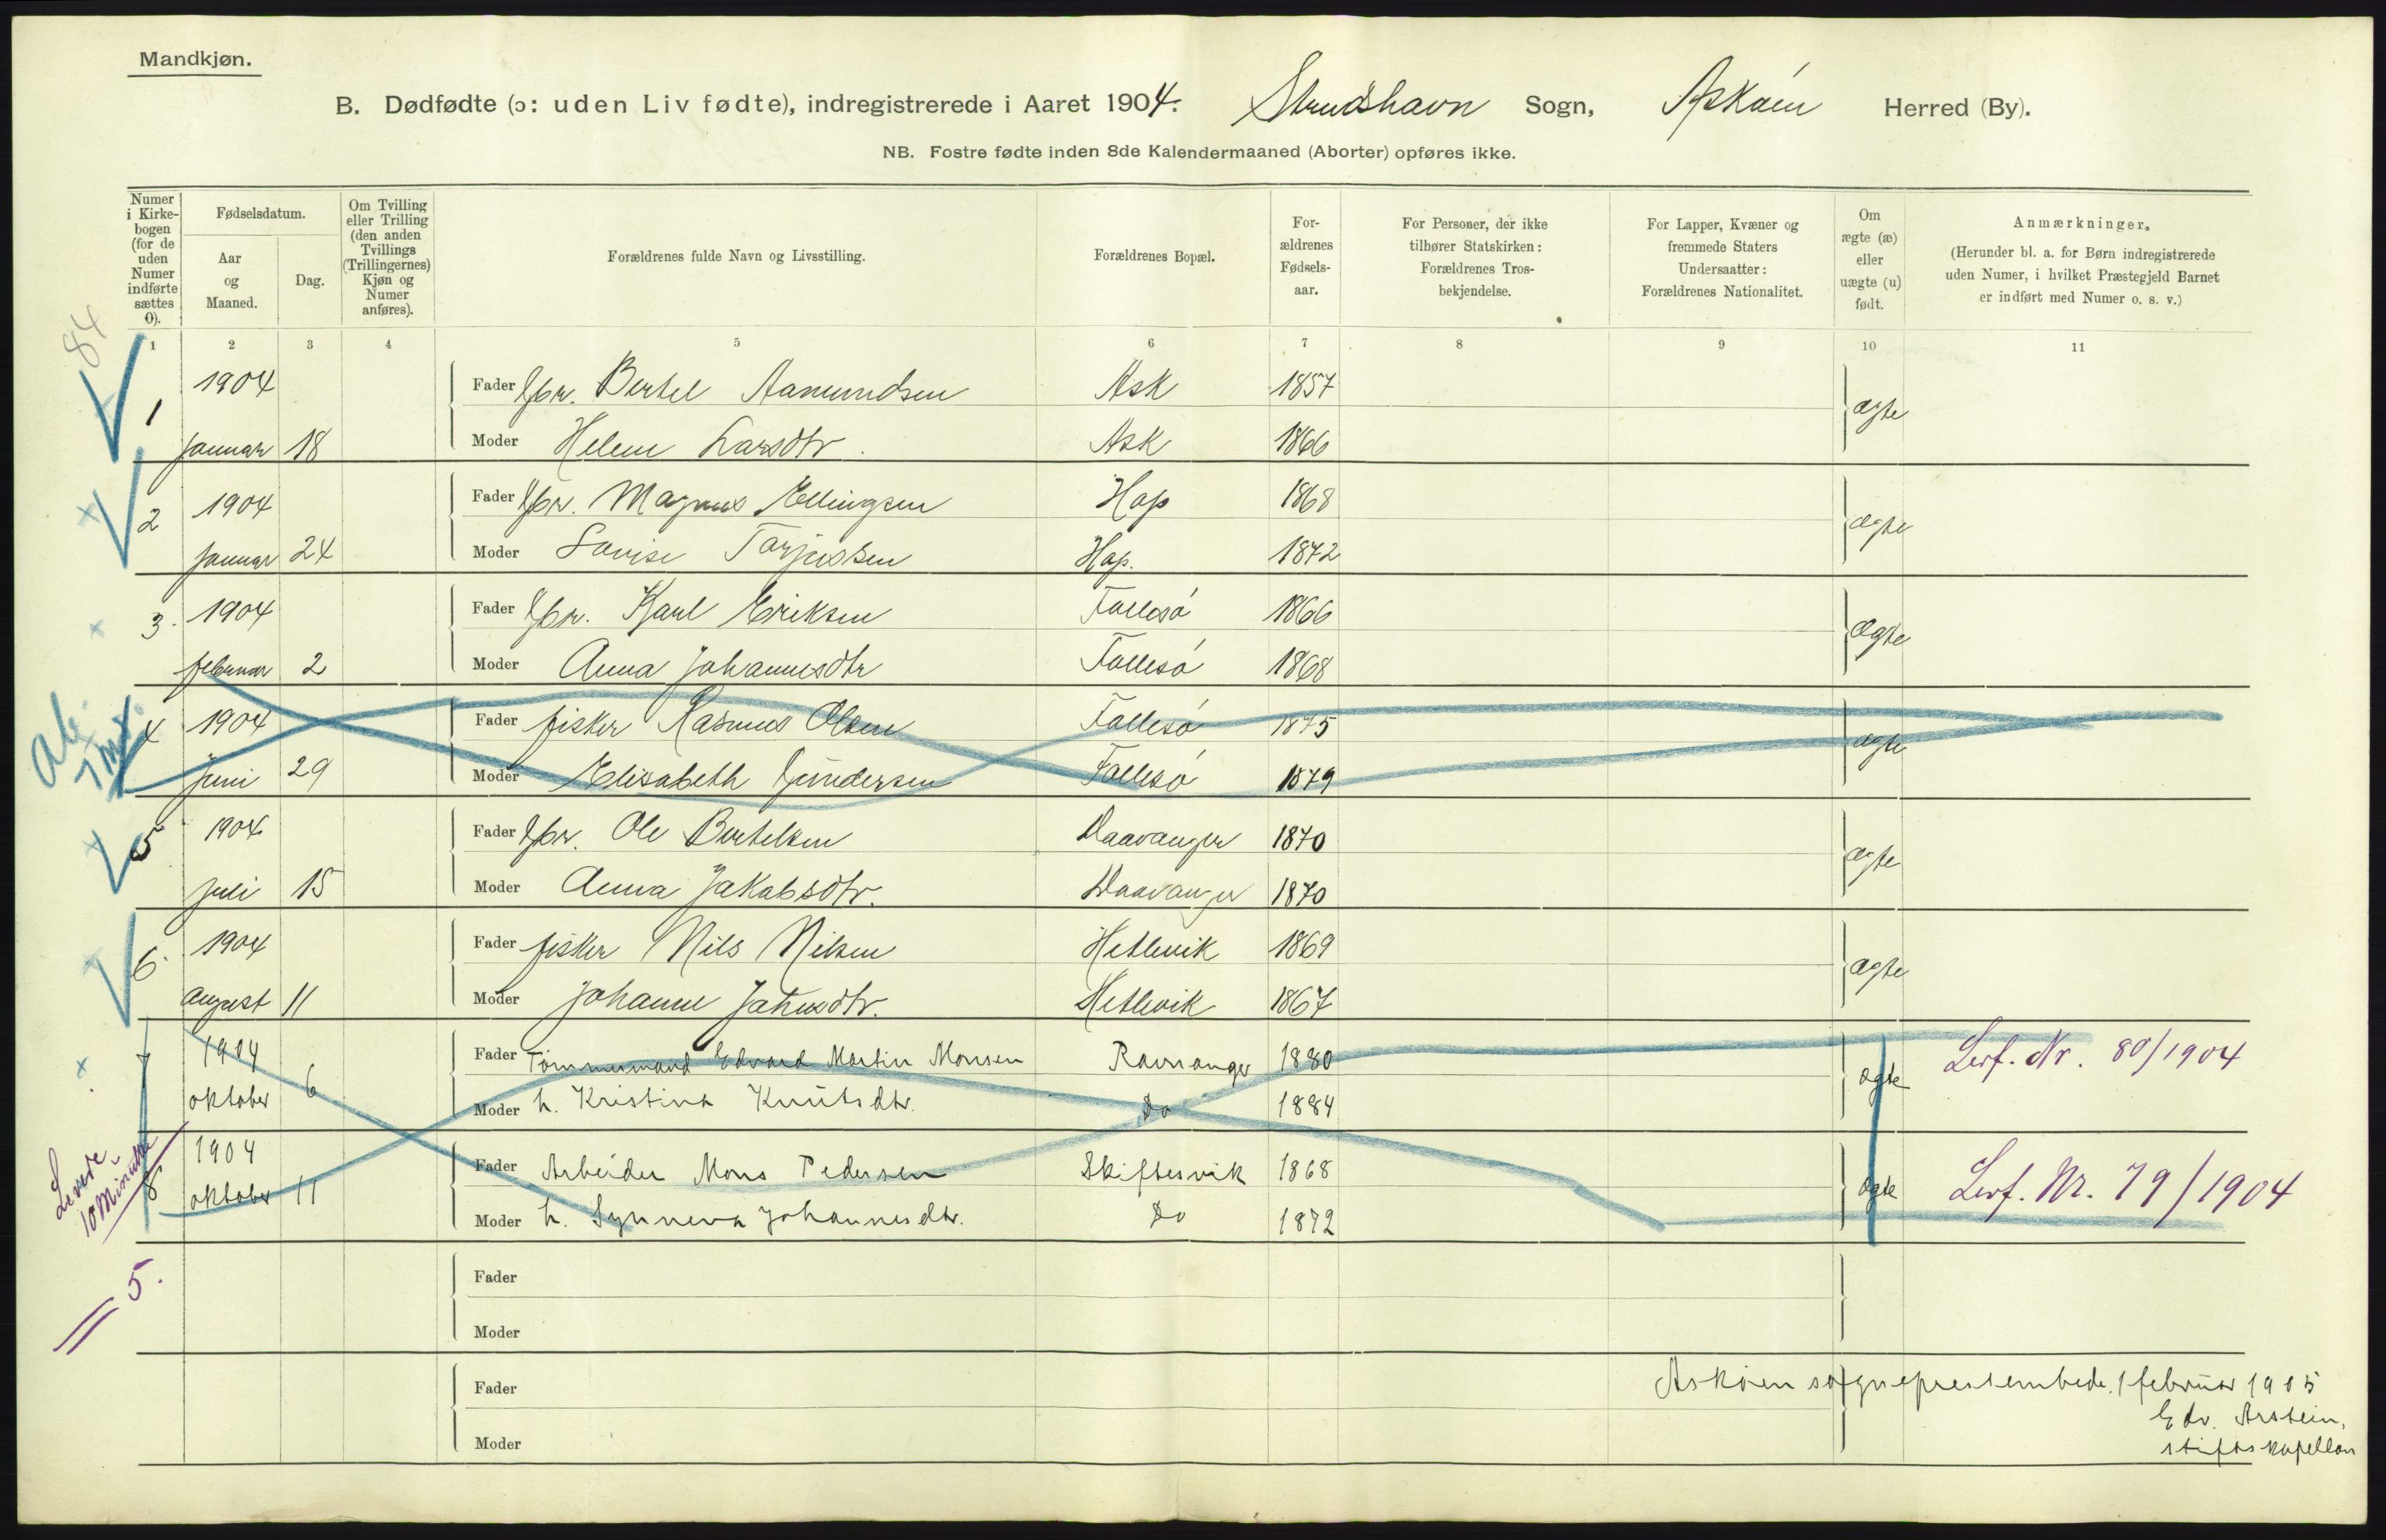 Mandkjøn.
B. Dødfødte (ɔ: uden Liv fødte), indregistrerede i Aaret 1904. Strudshavn Sogn, Askøen Herred (By).
NB. Fostre fødte inden 8de Kalendermaaned (Aborter) opføres ikke.
Numer i Kirkebogen (for de uden Numer indførte sættes 0).
Fødselsdatum.
Aar og Maaned.
Dag.
Om Tvilling eller Trilling (den anden Tvillings (Trillingernes) Kjøn og Numer anføres).
Forældrenes fulde Navn og Livsstilling.
Forældrenes Bopæl.
Forældrenes Fødselsaar.
For Personer, der ikke tilhører Statskirken: Forældrenes Trosbekjendelse.
For Lapper, Kvæner og fremmede Staters Undersaatter: Forældrenes Nationalitet.
Om ægte (æ) eller uægte (u) født.
Anmærkninger.
(Herunder bl. a. for Børn indregistrerede uden Numer, i hvilket Præstegjeld Barnet er indført med Numer o. s. v.)
84
1 2 3 4 5 6 7 8 9 10 11
1 1904 Fader Gbr. Bertel Aamundsen Ask 1857 ægte
Januar 18 Moder Helene Larsdtr. Ask 1866
2 1904 Fader Gbr. Magnus Ellingsen Hop 1868 ægte
Januar 24 Moder Lovise Torjussen Hop. 1872
3. 1904 Fader Gbr. Karl Eriksen Follesø 1866 ægte
februar 2 Moder Anna Johannesdtr Follesø 1868
4 1904 Fader fisker Rasmus Olsen Follesø 1875 ægte
Juni 29 Moder Elisabeth Gundersen Follesø 1879
5 1904 Fader Gbr. Ole Bertelsen Daavanger 1870 ægte
Juli 15 Moder Anna Jakobsdtr. Daavanger 1870
6. 1904 Fader fisker Nils Nilsen Hetlevik 1869 ægte
August 11 Moder Johanne Jetmundtr. Hetlevik 1867
7 1904 Fader Tømmermand Edvard Martin Monsen Ravnanger 1880 ægte Levf. Nr. 80/1904
oktober 6 Moder h. Kristina Knutsdtr. Do 1884
Levede 10 Minutter
8 1904 Fader Arbeider Mons Pedersen Skiftesvik 1868 ægte Levf. Nr. 79/1904
oktober 11 Moder h. Synneva Johannesdtr. Do 1872
= 5.
Fader
Moder
Fader
Moder
Askøen sogneprestembede, 1 februar 1905
Edv. Arstein,
stiftskapellan